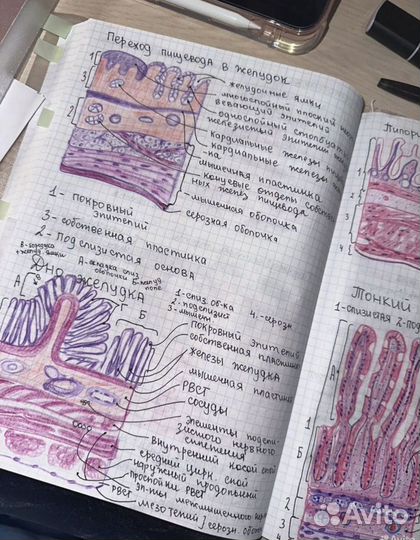 Переход пищевода в желудок
желудочные ямки
многослойный плоский
вевающий эпителий
однослойный столбчатый
железистый эпителий
кардиальные железы пищевода
кардиальные железы
ка
мышечная пластинка
концевые отделы собствен
ных желёз пищевода
мышечная оболочка
серозная оболочка
1- покровный
эпителий
3- собственная пластинка
2- подслизистая основа
Дно желудка
А-складка слиз.
оболочки
1-слиз. об-ка
2-подслизист
3-мышечн
4.-серозн
покровный эпителий
собственная пластинка
железы желудка
мышечная пластинка
РВСТ
сосуды
элементы подсли-
зистого нервного
сплетения
внутренний косой слой
средний цирк. слой
наружный продольный
прослойки РВСТ
эл-ты межмышечного
РВСТ
мезотелий] серозн.
1
3
2
А
В
Г
Б
1
2
3
4
Тонкий
1-слизистая 2-под
А
Б
1
2
3
4
Avito